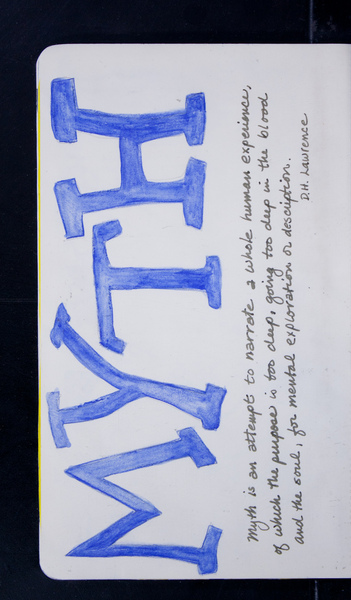 MYTH
Myth is an attempt to narrate a whole human experience,
of which the purpose is too deep, going too deep in the blood
and the soul, for mental exploration or description.
D.H. Lawrence